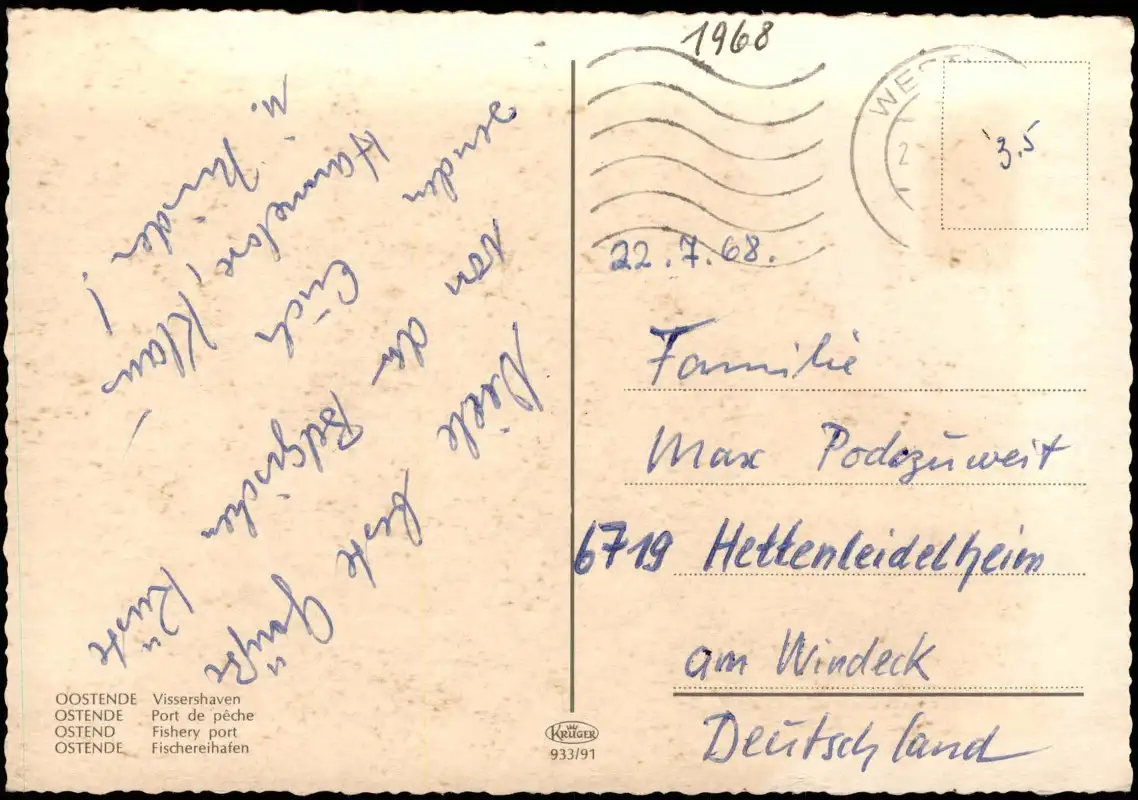 Viele beste Grüße
von der Belgischen Küste
senden Euch
Hannelore, Klaus
u. Kinder!
OOSTENDE Vissershaven
OSTENDE Port de pêche
OSTEND Fishery port
OSTENDE Fischereihafen
KRÜGER
933/91
1968
WEST
2
3.5
22.7.68.
Familie
Max Podszuweit
6719 Hettenleidelheim
am Windeck
Deutschland